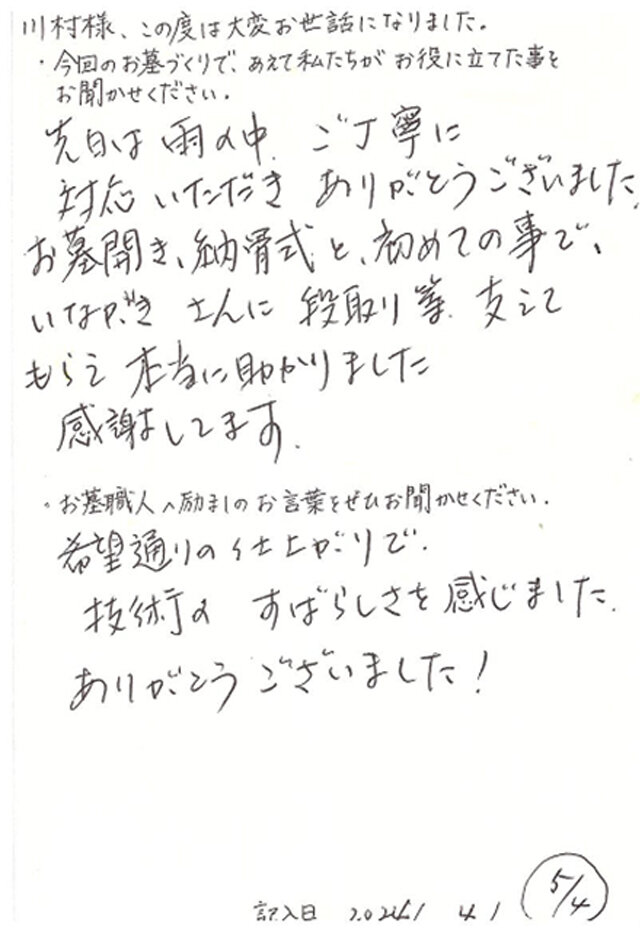 川村様、この度は大変お世話になりました。
・今回のお墓づくりで、あえて私たちがお役に立てた事を
お聞かせください。
先日は雨の中、ご丁寧に
対応いただき ありがとうございました。
お墓開き、納骨式と、初めての事で、
いながき さんに 段取り等、支えて
もらえ 本当に助かりました
感謝してます。
・お墓職人へ励ましのお言葉をぜひお聞かせください。
希望通りの仕上がりで、
技術の すばらしさを感じました。
ありがとうございました!
5/4
記入日 4.1